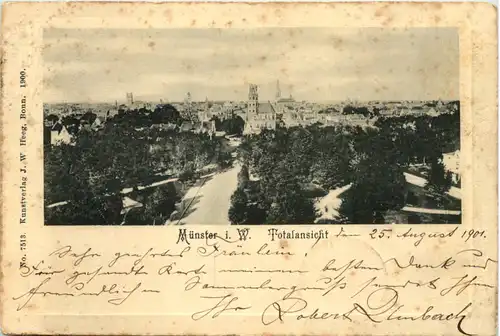 No. 7513. Kunstverlag J. W. Heeg, Bonn. 1900.
Münster i. W. Totalansicht
den 25. August 1901.
Sehr geehrtes Fräulein!
Für gesandte Karte meinen besten Dank und
freundlichen Sammlergruss sendet Ihnen
Ihr Robert